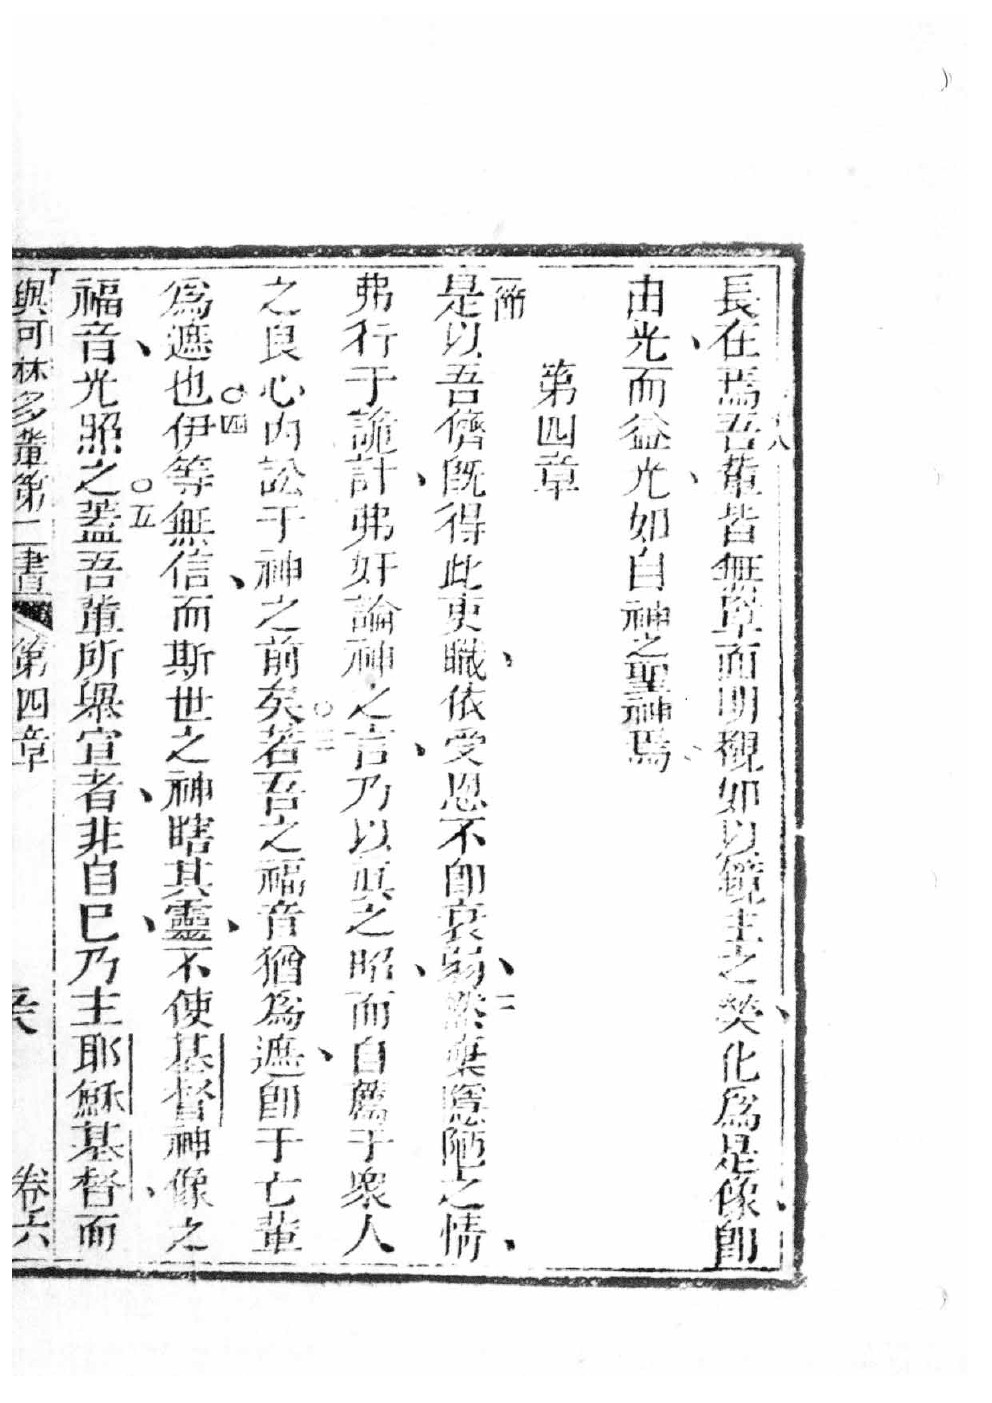 長在焉吾輩皆無罩面明觀如以鏡主之榮化為是像即
由光而益光如自神之聖神焉
第四章
一節
是以吾儕旣得此吏職依受恩不即衰弱二然棄隱陋之情
弗行于詭計弗奸論神之言乃以眞之昭而自薦于衆人
之良心內訟于神之前矣○三若吾之福音猶為遮即于亡輩
為遮也○四伊等無信而斯世之神瞎其靈不使基督神像之
福音光照之○五蓋吾輩所舉宣者非自己乃主耶穌基督而
與可林多輩第二書 第四章 卷六